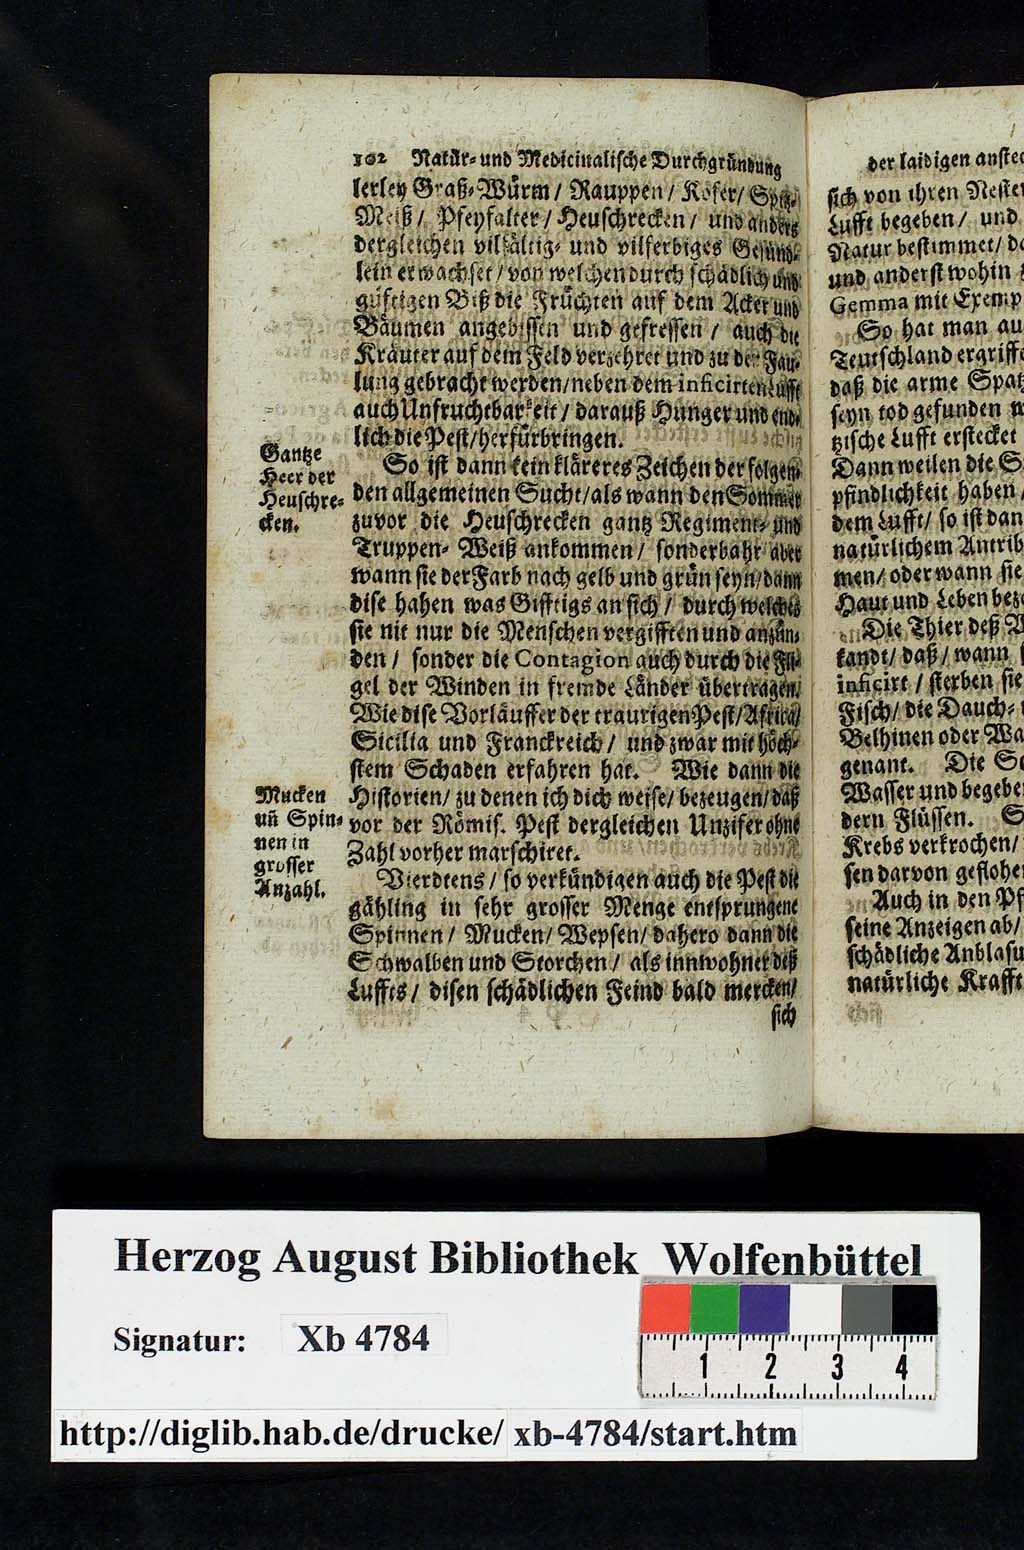 102 Natür- und Medicinalische Durchgründung
lerley Graß-Würm / Rauppen / Kofer / Spitz-
Meiß / Pfeyfalter / Heuschrecken / und anders
dergleichen vilfältig- und vilferbiges Gesünd-
lein erwachset / von welchen durch schädlich und
güfftigen Biß die Früchten auf dem Acker und
Bäumen angebissen und gefressen / auch die
Kräuter auf dem Feld verzehret und zu der Fau-
lung gebracht werden / neben dem inficirten Lufft
auch Unfruchtbarkeit / darauß Hunger und end-
lich die Pest / herfürbringen.
Gantze
Heer der
Heuschre-
cken.
So ist dann kein kläreres Zeichen der folgen-
den allgemeinen Sucht / als wann den Sommer
zuvor die Heuschrecken gantz Regiment- und
Truppen- Weiß ankommen / sonderbahr aber
wann sie der Farb nach gelb und grün seyn / dann
dise haben was Gifftigs an sich / durch welches
sie nit nur die Menschen vergifften und anzün-
den / sonder die Contagion auch durch die Fli-
gel der Winden in fremde Länder übertragen.
Wie dise Vorläuffer der traurigen Pest / Africa /
Sicilia und Franckreich / und zwar mit höch-
stem Schaden erfahren hat. Wie dann die
Historien / zu denen ich dich weise / bezeugen / daß
vor der Römis. Pest dergleichen Unzifer ohne
Zahl vorher marschiret.
Mucken
uñ Spin-
nen in
grosser
Anzahl.
Vierdtens / so verkündigen auch die Pest die
gähling in sehr grosser Menge entsprungene
Spinnen / Mucken / Wepsen / dahero dann die
Schwalben und Storchen / als innwohner deß
Luffts / disen schädlichen Feind bald mercken /
sich
der laidigen anstec
sich von ihren Neste
Lufft begeben / und
Natur bestimmet / da
und anderstwohin
Gemma mit Exemp
So hat man au
Teutschland ergriffe
daß die arme Spatz
seyn tod gefunden w
tzische Lufft erstecket
Dann weilen die S
pfindlichkeit haben /
dem Lufft / so ist dan
natürlichem Antrib
men / oder wann sie
Haut und Leben beze
Die Thier deß W
kandt / daß / wann
inficirt / sterben sie
Fisch / die Dauch-
Belhinen oder Wa
genant. Die Sc
Wasser und begebe
dern Flüssen. S
Krebs verkrochen /
sen darvon geflohe
Auch in den Pf
seine Anzeigen ab /
schädliche Anblasu
natürliche Krafft
Herzog August Bibliothek Wolfenbüttel
Signatur: Xb 4784
1 2 3 4
http://diglib.hab.de/drucke/ xb-4784/start.htm